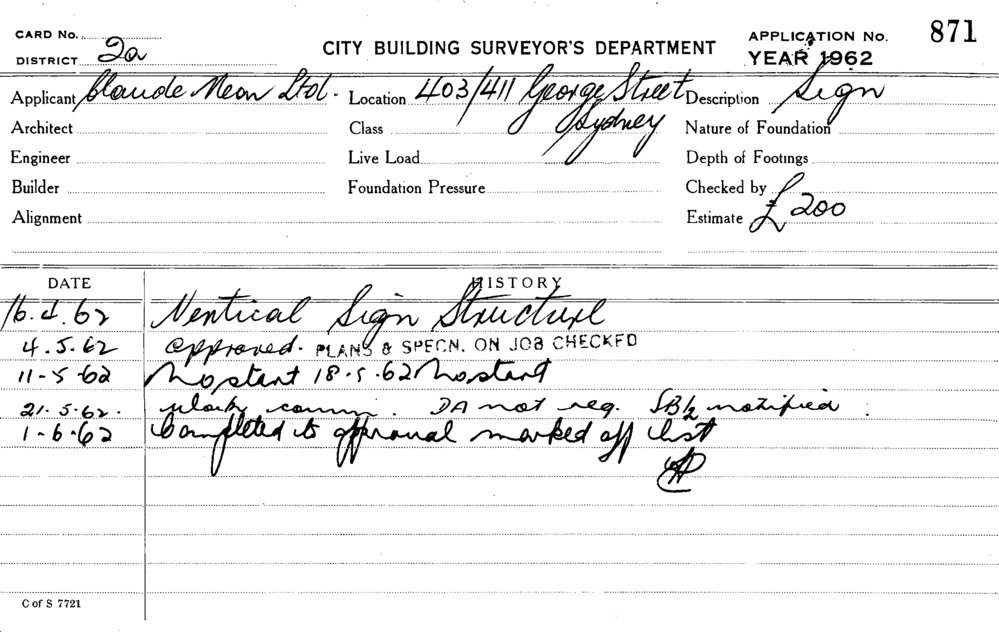 CARD No.
DISTRICT 2a
CITY BUILDING SURVEYOR'S DEPARTMENT
APPLICATION No. 871
YEAR 1962
Applicant Claude Neon Ltd. Location 403/411 George Street Description Sign
Architect Class Sydney Nature of Foundation
Engineer Live Load Depth of Footings
Builder Foundation Pressure Checked by
Alignment Estimate £200
DATE HISTORY
16.4.62 Vertical Sign Structure
4.5.62 approved. PLANS & SPECN. ON JOB CHECKED
11-5-62 No start 18.5.62 No start
21.5.62. work comm. DA not req. notified
1-6-62 Completed to approval marked off list
C of S 7721